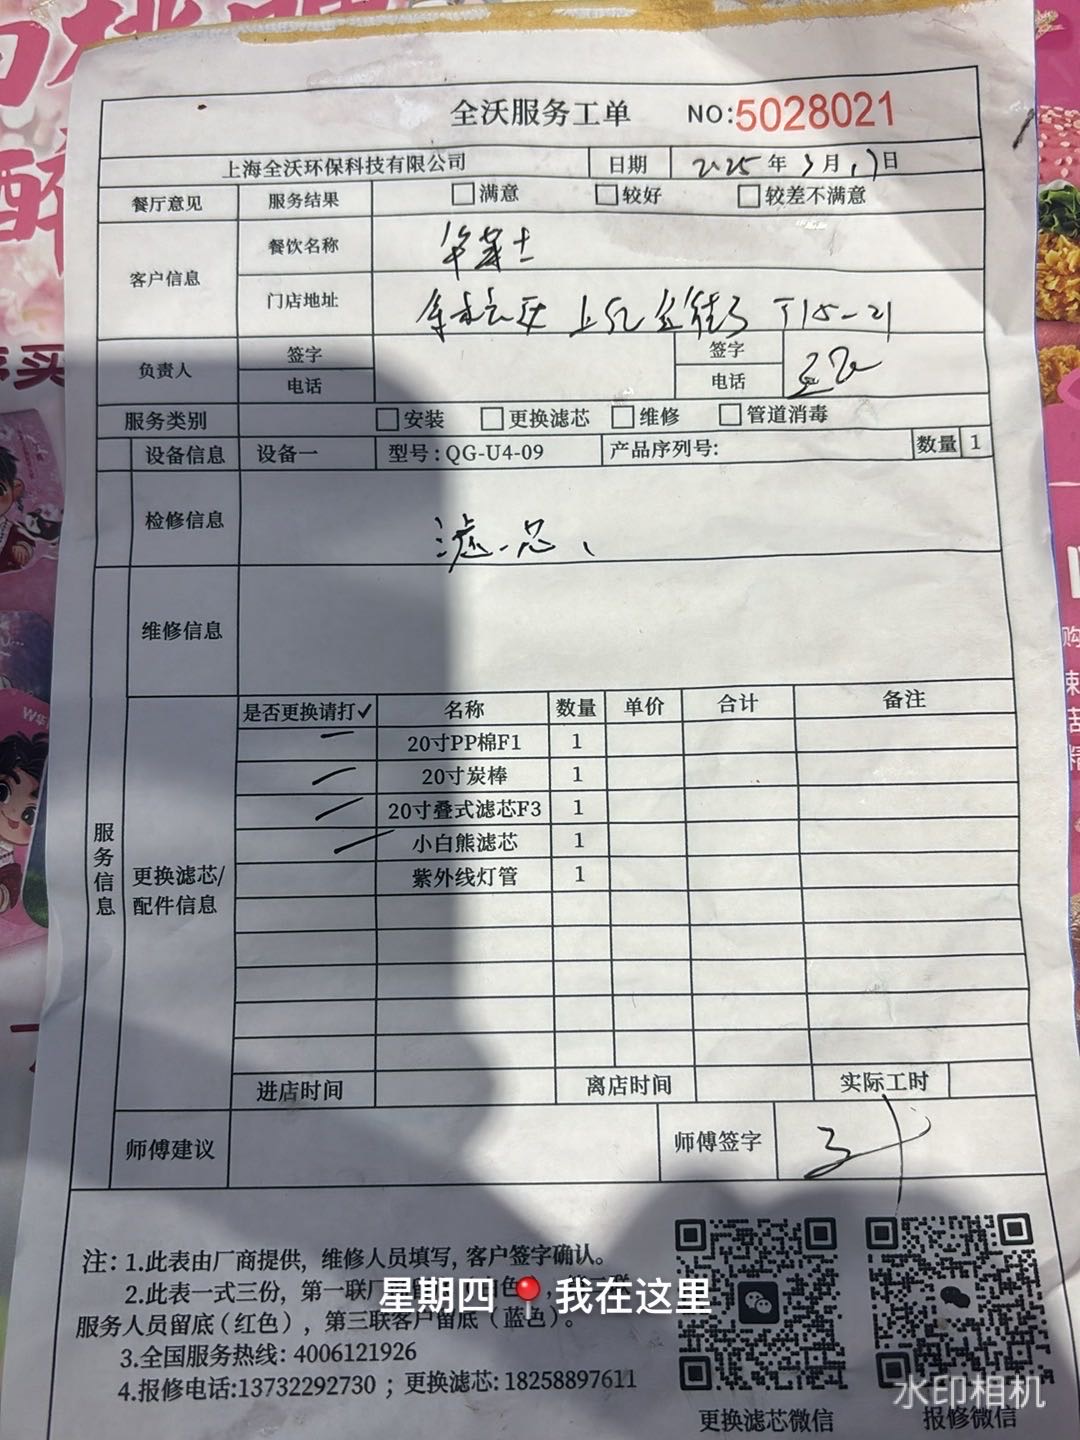 全沃服务工单 NO:5028021
上海全沃环保科技有限公司 日期 2025年3月17日
餐厅意见 服务结果 满意 较好 较差不满意
客户信息 餐饮名称 华莱士
门店地址 上亿 T15-21
负责人 签字 签字
电话 电话
服务类别 安装 更换滤芯 维修 管道消毒
设备信息 设备一 型号:QG-U4-09 产品序列号: 数量 1
检修信息 滤芯、
服务信息
维修信息
更换滤芯/
配件信息
是否更换请打✓ 名称 数量 单价 合计 备注
20寸PP棉F1 1
20寸炭棒 1
20寸叠式滤芯F3 1
小白熊滤芯 1
紫外线灯管 1
进店时间 离店时间 实际工时
师傅建议 师傅签字
注: 1.此表由厂商提供, 维修人员填写, 客户签字确认。
2.此表一式三份, 第一联厂
服务人员留底(红色), 第三联客户留底(蓝色)。
3.全国服务热线: 4006121926
4.报修电话:13732292730 ; 更换滤芯: 18258897611
更换滤芯微信 报修微信
星期四📍我在这里
水印相机